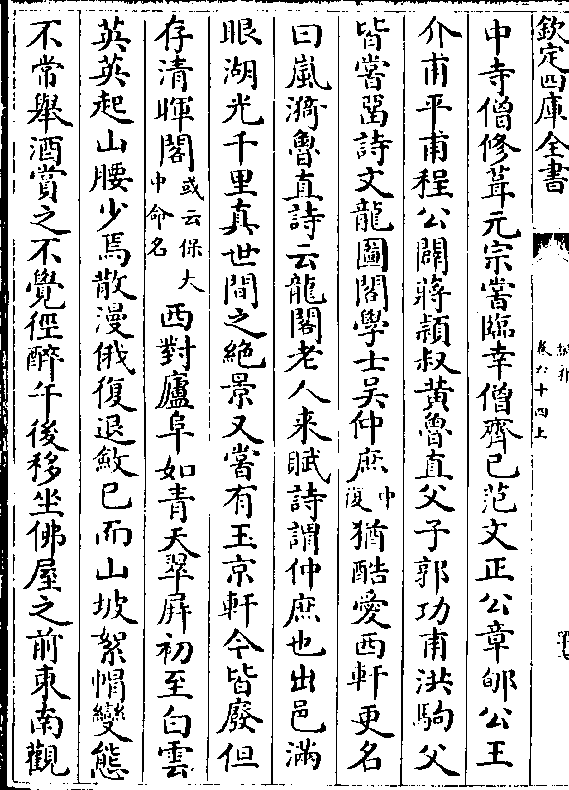 欽定四庫全書
說郛
卷六十四上
中寺僧修葺元宗嘗臨幸僧齊已范文正公章郇公王
介甫平甫程公闢蔣穎叔黃魯直父子郭功甫洪駒父
皆嘗留詩文龍圖閣學士吳仲庶中復猶酷愛西軒更名
曰嵐漪魯直詩云龍閣老人来賦詩謂仲庶也出邑滿
眼湖光千里真世間之絶景又嘗有玉京軒今皆廢但
存清暉閣或云保大中命名西對廬阜如青天翠屏初至白雲
英英起山腰少焉散漫俄復退斂已而山坡絮帽變態
不常舉酒賞之不覺徑醉午後移坐佛屋之前東南觀